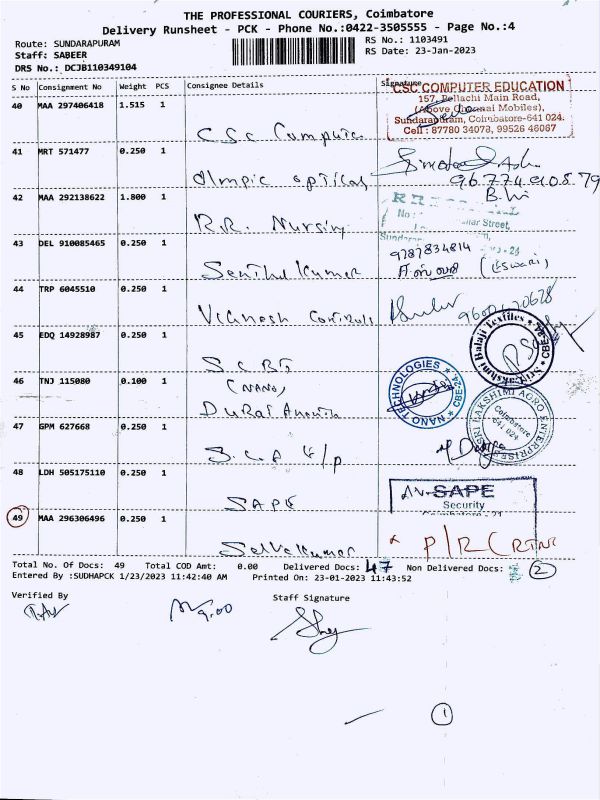 THE PROFESSIONAL COURIERS, Coimbatore
Delivery Runsheet - PCK - Phone No.:0422-3505555 - Page No.:4
Route: SUNDARAPURAM
RS No.: 1103491
Staff: SABEER
RS Date: 23-Jan-2023
DRS No.: DCJB110349104
S No Consignment No Weight PCS Consignee Details Signature
CSC COMPUTER EDUCATION
157, Pollachi Main Road,
(Above Chennai Mobiles),
Sundarapuram, Coimbatore-641 024.
Cell : 87780 34073, 99526 46067
40 MAA 297406418 1.515 1
CSC Computer
41 MRT 571477 0.250 1
Olmpic opticals
42 MAA 292138622 1.800 1
R.R. Nursing
43 DEL 910085465 0.250 1
9787834814
Senthil Kumar
(ESwari)
44 TRP 6045510 0.250 1
Vignesh Controls
45 EDQ 14928987 0.250 1
Sri Lakshmi Balaji Textiles * CBE-24 *
46 TNJ 115080 0.100 1
(NANO)
Durai Ananth
NANO TECHNOLOGIES * CBE-24 *
47 GPM 627668 0.250 1
SRI LAKSHIMI AGRO ENTERPRISES
Coimbatore
641 024
48 LDH 505175110 0.250 1
SAPE
SAPE
Security
Coimbatore - 21
49 MAA 296306496 0.250 1
Selvakumar
P/R (RTNR
Total No. Of Docs: 49 Total COD Amt: 0.00 Delivered Docs: 47 Non Delivered Docs: 2
Entered By :SUDHAPCK 1/23/2023 11:42:40 AM Printed On: 23-01-2023 11:43:52
Verified By
Staff Signature
9.00
1